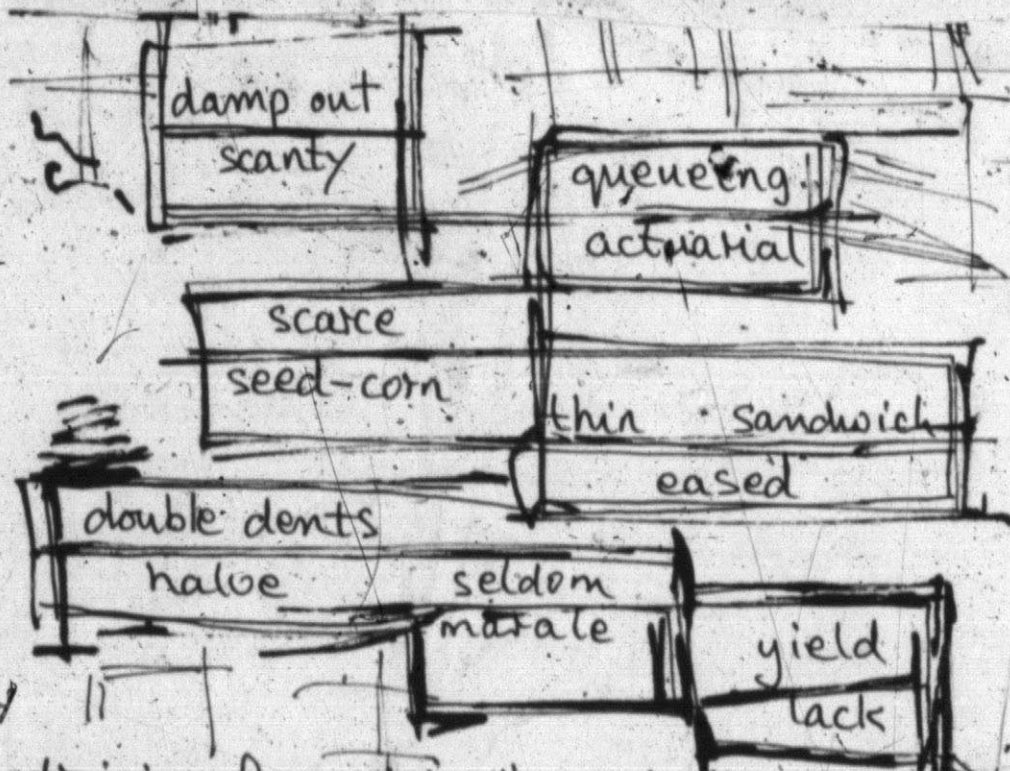 damp out
scanty
queueing
actuarial
scarce
seed-corn
thin sandwich
eased
double dents
halve seldom
morale
yield
lack